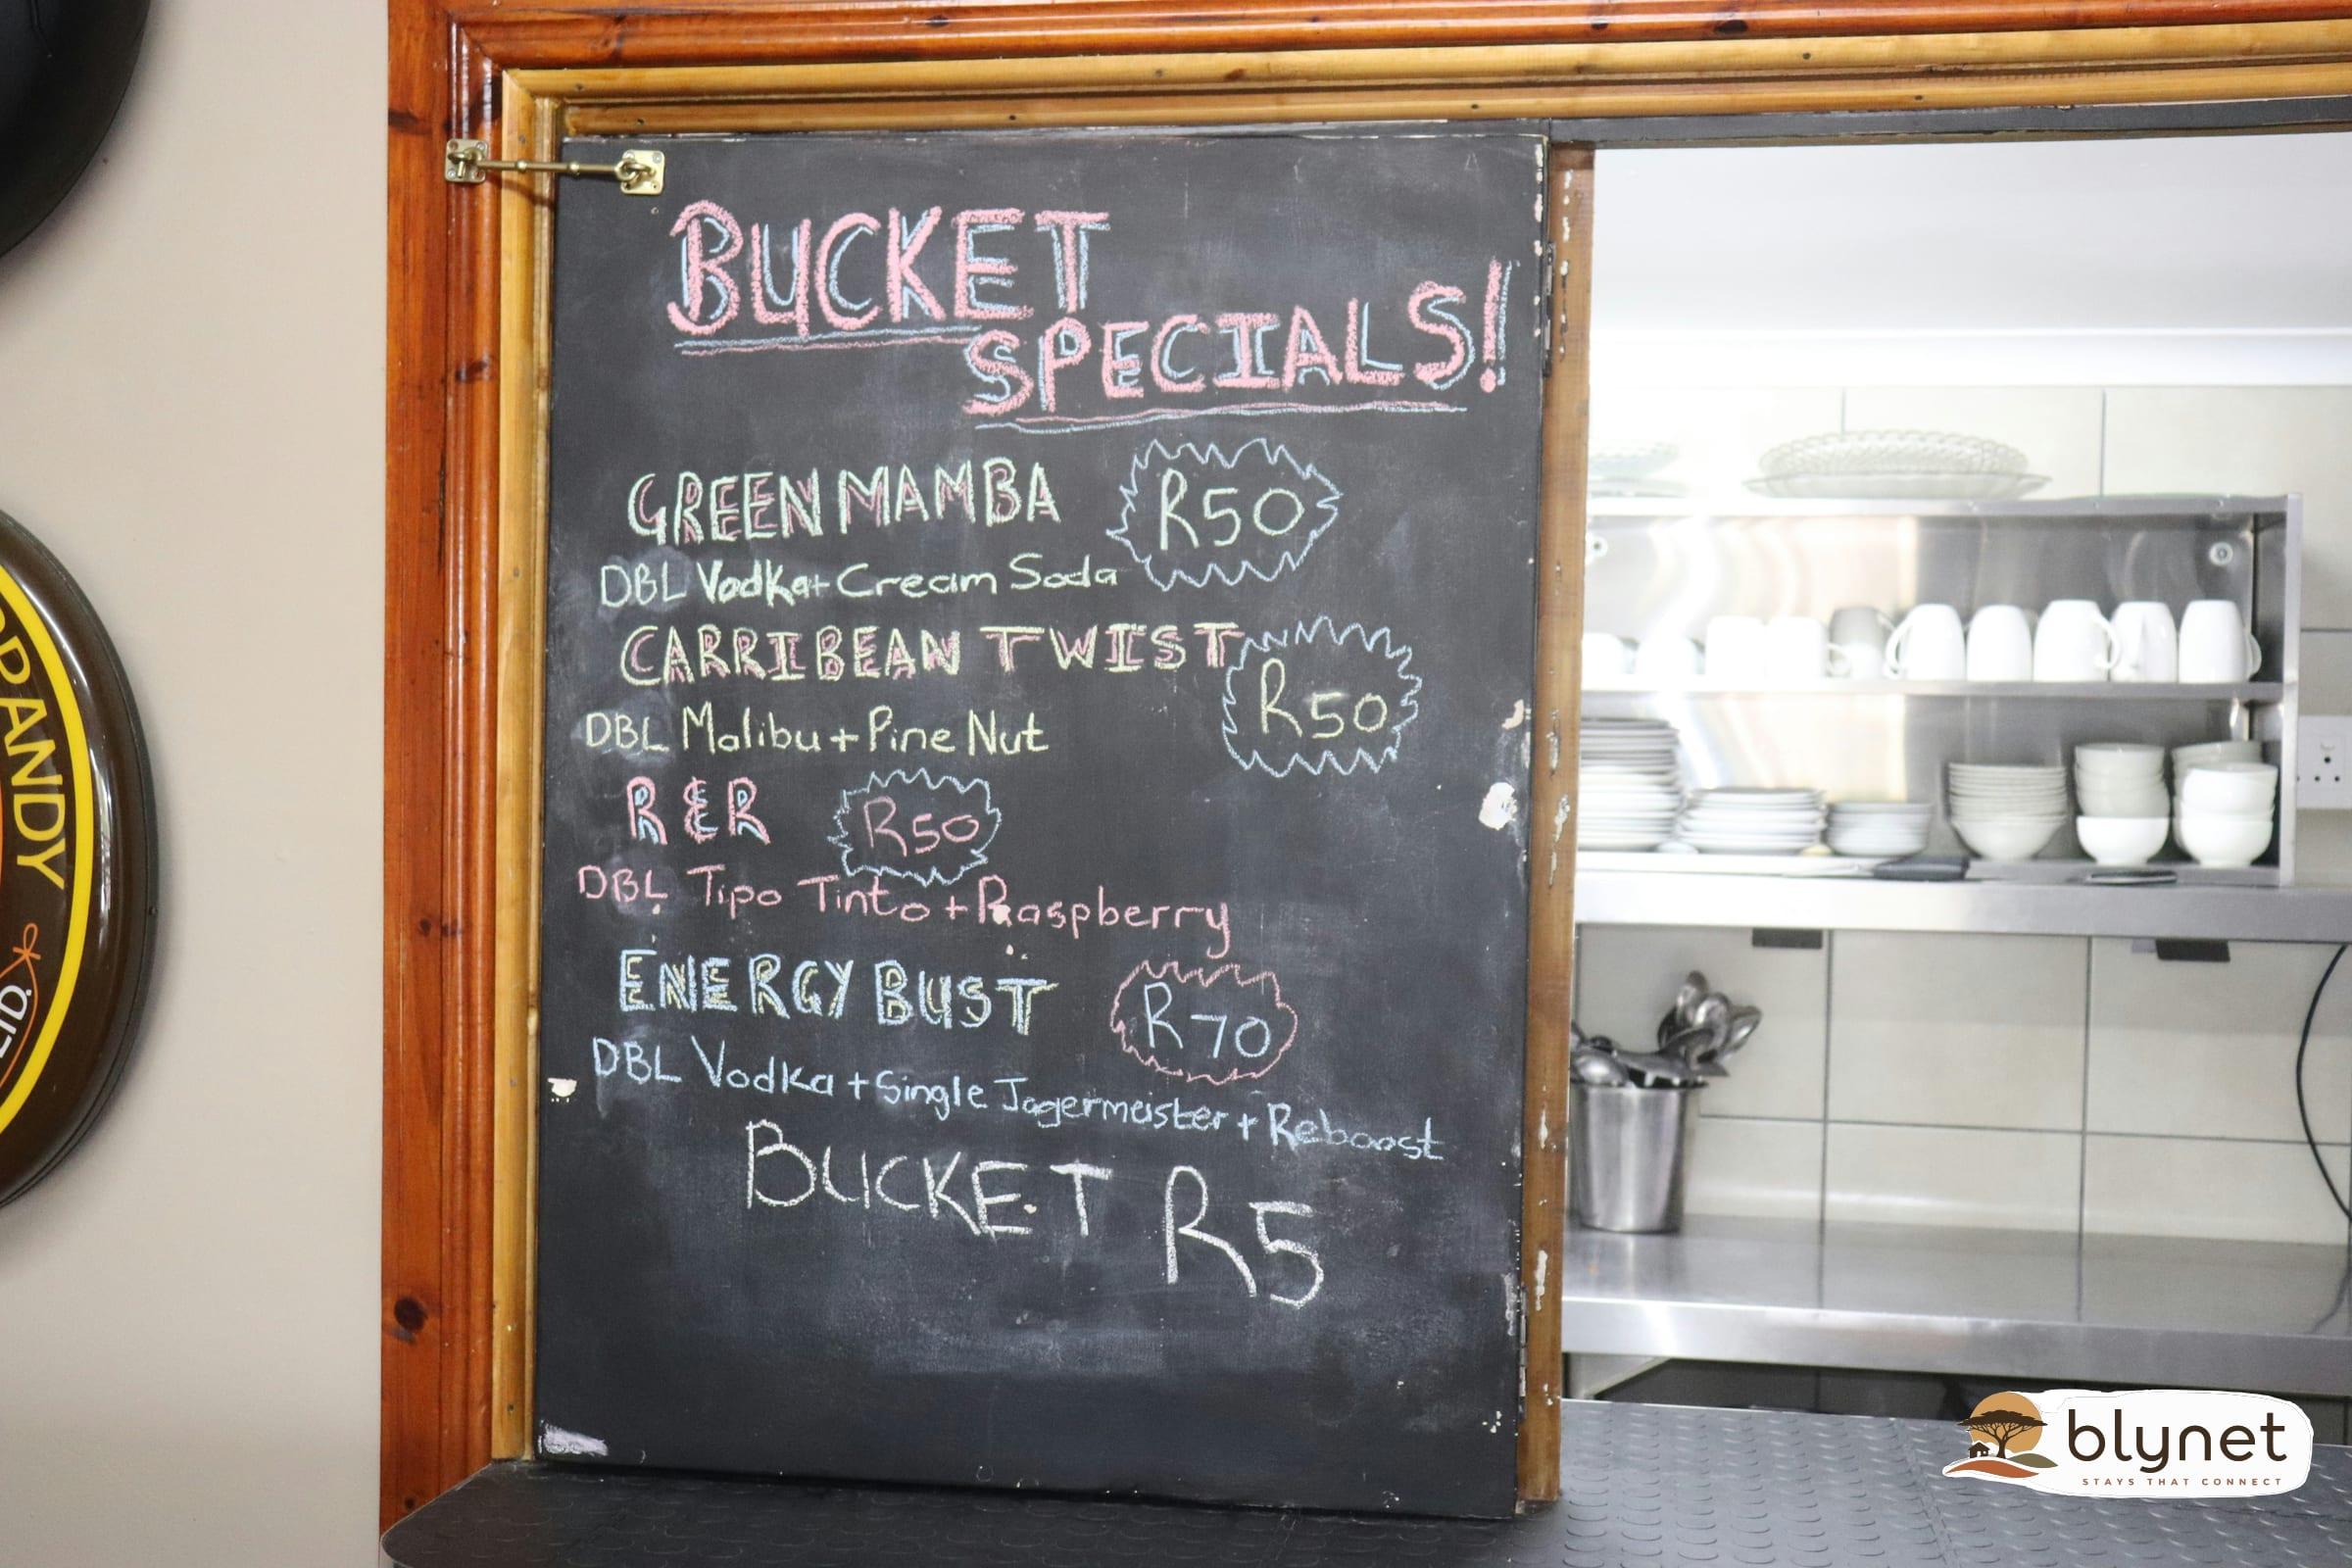 BUCKET
SPECIALS!
GREEN MAMBA R50
DBL Vodka + Cream Soda
CARRIBEAN TWIST
R50
DBL Malibu + Pine Nut
R & R R50
DBL Tipo Tinto + Raspberry
ENERGY BUST R70
DBL Vodka + Single Jagermeister + Reboost
BUCKET R5
blynet
STAYS THAT CONNECT